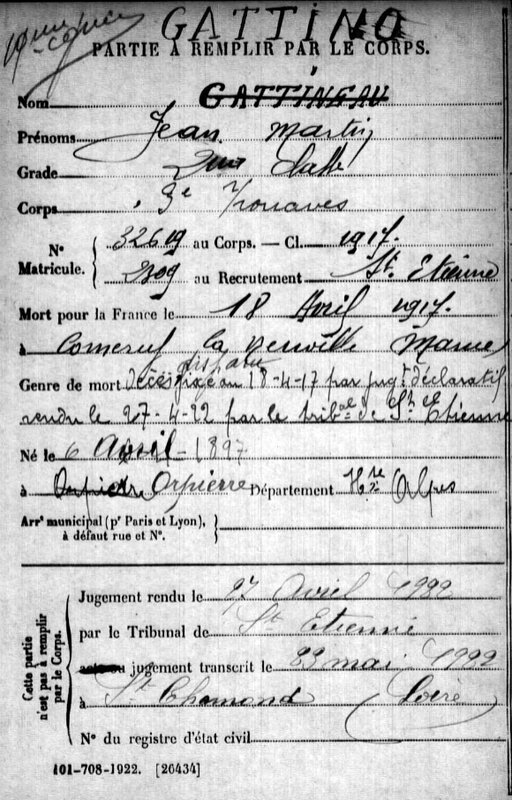 GATTINO
PARTIE À REMPLIR PAR LE CORPS.
Nom GATTINEAU
Prénoms Jean Martin
Grade 2me Classe
Corps 3e Zouaves
Nº Matricule. { 32619 au Corps. — Cl. 1917.
2309 au Recrutement St. Etienne
Mort pour la France le 18 Avril 1917.
à la Neuville Marne
disparu
Genre de mort Décès fixé au 18-4-17 par jugt déclaratif
rendu le 27-4-22 par le tribal de St Etienne
Né le 6 Avril 1897
à Orpierre Département Htes Alpes
Arrt municipal (pr Paris et Lyon),
à défaut rue et Nº.
Cette partie n'est pas à remplir par le Corps.
Jugement rendu le 27 Avril 1922
par le Tribunal de St Etienne
jugement transcrit le 23 mai 1922
à St Chamond (Loire)
Nº du registre d'état civil
101-708-1922. [26434]